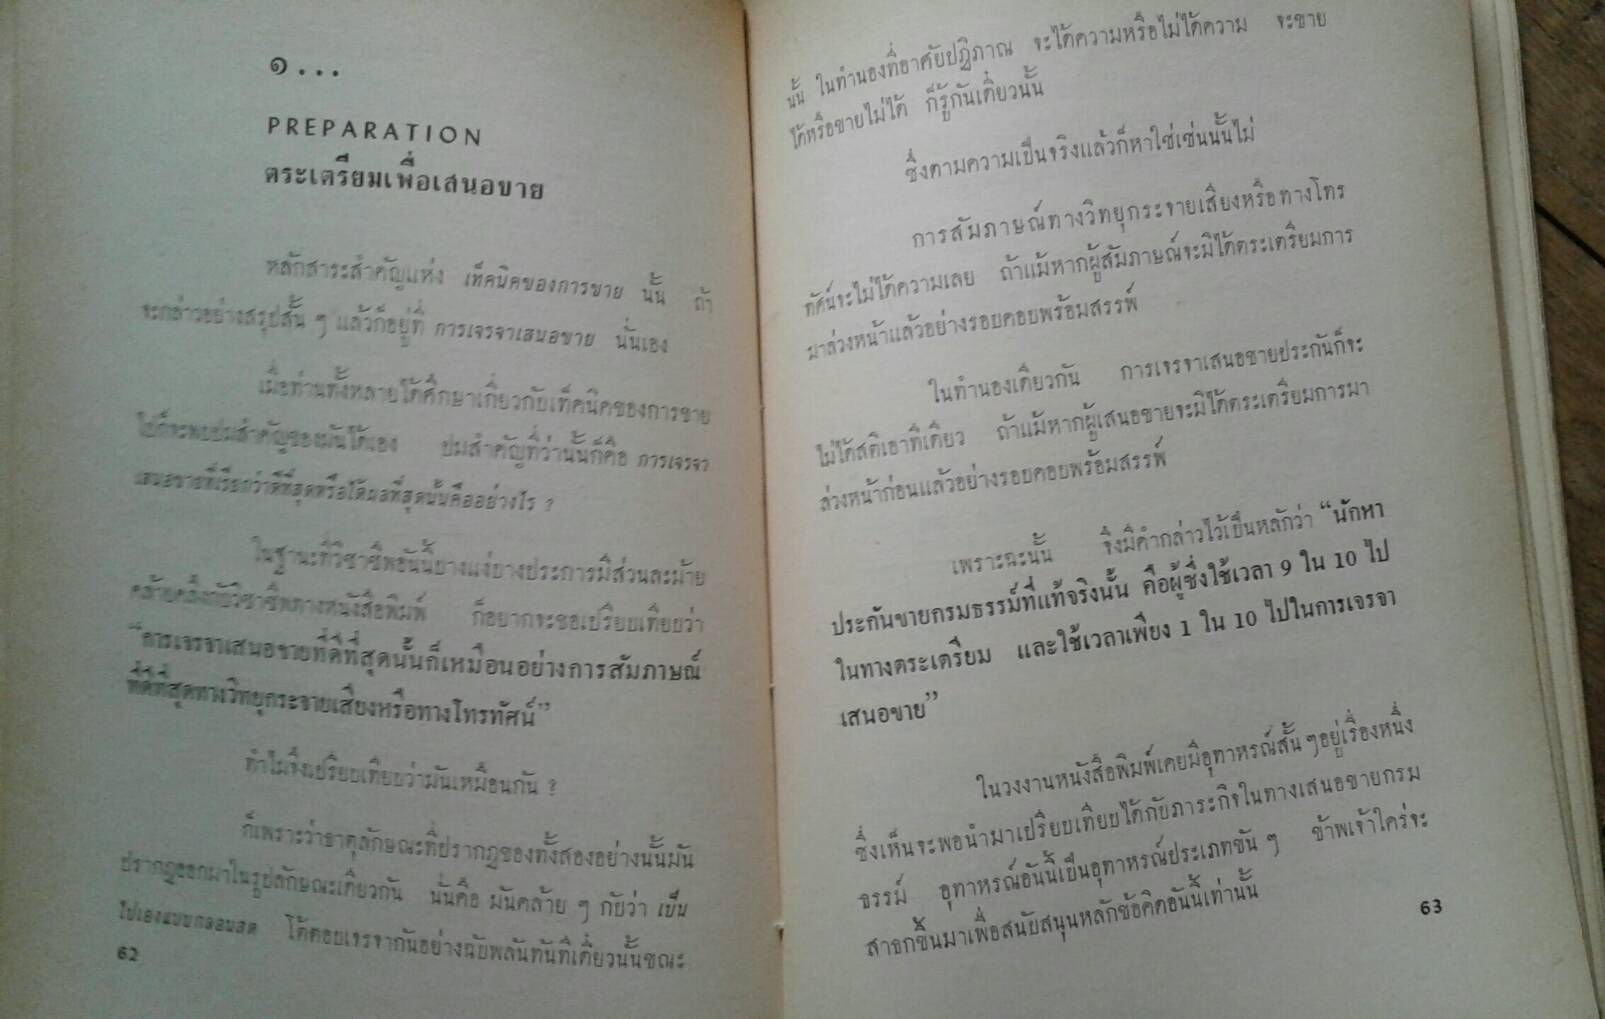 ๑...
PREPARATION
ตระเตรียมเพื่อเสนอขาย
หลักสาระสำคัญแห่ง เท็คนิคของการขาย นั้น ถ้า
จะกล่าวอย่างสรุปสั้น ๆ แล้วก็อยู่ที่ การเจรจาเสนอขาย นั่นเอง
เมื่อท่านทั้งหลายได้ศึกษาเกี่ยวกับเท็คนิคของการขาย
ไปก็จะพบปมสำคัญของมันได้เอง ปมสำคัญที่ว่านั้นก็คือ การเจรจา
เสนอขายที่เรียกว่าดีที่สุดหรือได้ผลที่สุดนั้นคืออย่างไร ?
ในฐานะที่วิชาชีพอันนี้บางแง่บางประการมีส่วนละม้าย
คล้ายคลึงกับวิชาชีพทางหนังสือพิมพ์ ก็อยากจะขอเปรียบเทียบว่า
“การเจรจาเสนอขายที่ดีที่สุดนั้นก็เหมือนอย่างการสัมภาษณ์
ที่ดีที่สุดทางวิทยุกระจายเสียงหรือทางโทรทัศน์”
ทำไมจึงเปรียบเทียบว่ามันเหมือนกัน ?
ก็เพราะว่าธาตุลักษณะที่ปรากฏของทั้งสองอย่างนั้นมัน
ปรากฏออกมาในรูปลักษณะเดียวกัน นั่นคือ มันคล้าย ๆ กับว่า เป็น
ไปเองแบบกลอนสด โต้ตอบเจรจากันอย่างฉับพลันทันทีเดี๋ยวนั้นขณะ
62
นั้น ในทำนองที่อาศัยปฏิภาณ จะได้ความหรือไม่ได้ความ จะขาย
ได้หรือขายไม่ได้ ก็รู้กันเดี๋ยวนั้น
ซึ่งตามความเป็นจริงแล้วก็หาใช่เช่นนั้นไม่
การสัมภาษณ์ทางวิทยุกระจายเสียงหรือทางโทร
ทัศน์จะไม่ได้ความเลย ถ้าแม้หากผู้สัมภาษณ์จะมิได้ตระเตรียมการ
มาล่วงหน้าแล้วอย่างรอบคอบพร้อมสรรพ์
ในทำนองเดียวกัน การเจรจาเสนอขายประกันก็จะ
ไม่ได้สติเอาทีเดียว ถ้าแม้หากผู้เสนอขายจะมิได้ตระเตรียมการมา
ล่วงหน้าก่อนแล้วอย่างรอบคอบพร้อมสรรพ์
เพราะฉะนั้น จึงมีคำกล่าวไว้เป็นหลักว่า “นักหา
ประกันขายกรมธรรม์ที่แท้จริงนั้น คือผู้ซึ่งใช้เวลา 9 ใน 10 ไป
ในทางตระเตรียม และใช้เวลาเพียง 1 ใน 10 ไปในการเจรจา
เสนอขาย”
ในวงงานหนังสือพิมพ์เคยมีอุทาหรณ์สั้น ๆอยู่เรื่องหนึ่ง
ซึ่งเห็นจะพอนำมาเปรียบเทียบได้กับภาระกิจในทางเสนอขายกรม
ธรรม์ อุทาหรณ์อันนี้เป็นอุทาหรณ์ประเภทขัน ๆ ข้าพเจ้าใคร่จะ
สาธกขึ้นมาเพื่อสนับสนุนหลักข้อคิดอันนี้เท่านั้น
63